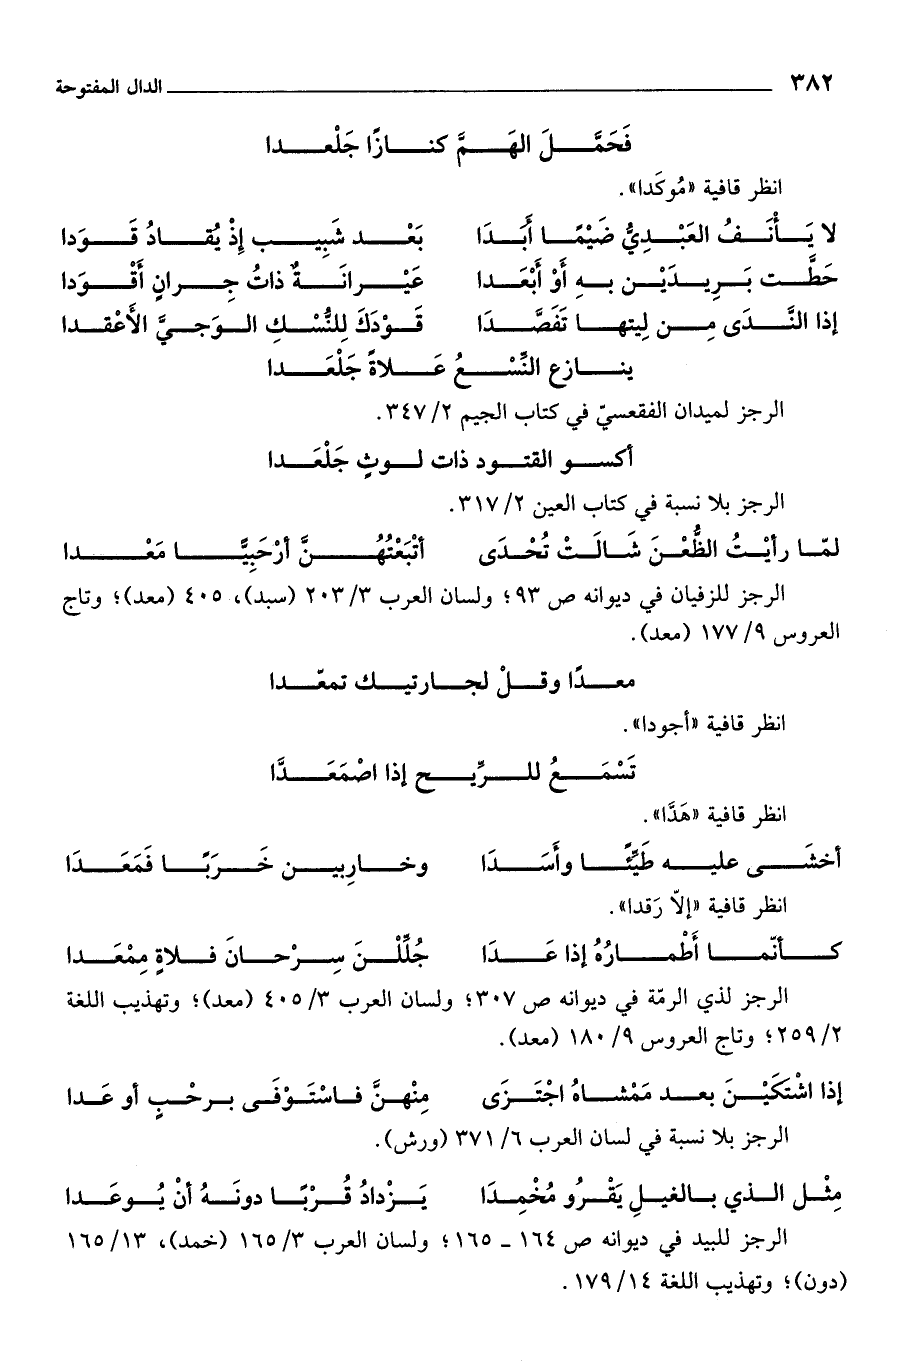 ٣٨٢ الدال المفتوحة
فَحَمَّلَ الهَمَّ كنازًا جَلْعدا
انظر قافية «مُوكَدا».
لا يَأْنَفُ العَبْدِيُّ ضَيْمًا أَبَدَا بَعْد شَبِيب إذْ يُقادُ قَوَدا
حَطَّت بَرِيدَيْن بهِ أَوْ أَبْعَدا عَيْرانَةٌ ذاتُ جِرانٍ أَقْوَدا
إذا النَّدَى مِن لِيتها تَفَصَّدَا قَوْدَكَ لِلنُّسْكِ الوَجِيَّ الأَعْقدا
ينازع النِّسْعُ عَلاةً جَلْعَدا
الرجز لميدان الفقعسيّ في كتاب الجيم ٢/ ٣٤٧.
أكسو القتود ذات لوثٍ جَلْعَدا
الرجز بلا نسبة في كتاب العين ٢/ ٣١٧.
لمّا رأيْتُ الظُّعْنَ شَالَتْ تُحْدَى أتْبَعْتُهُنَّ أرْحَبِيًّا مَعْدا
الرجز للزفيان في ديوانه ص ٩٣؛ ولسان العرب ٣/ ٢٠٣ (سبد)، ٤٠٥ (معد)؛ وتاج
العروس ٩/ ١٧٧ (معد).
معدًا وقلْ لجارتيك تمعّدا
انظر قافية «أجودا».
تَسْمَعُ للرِّيح إذا اصْمَعَدَّا
انظر قافية «هَدَّا».
أخشَى عليه طَيِّئًا وأَسَدَا وخارِبين خَرَبًا فَمَعَدَا
انظر قافية «إلاّ رَقدا».
كأنّما أَطْمارُهُ إذا عَدَا جُلِّلْنَ سِرْحانَ فلاةٍ مِمْعَدا
الرجز لذي الرمّة في ديوانه ص ٣٠٧؛ ولسان العرب ٣/ ٤٠٥ (معد)؛ وتهذيب اللغة
٢/ ٢٥٩؛ وتاج العروس ٩/ ١٨٠ (معد).
إذا اشْتَكَيْنَ بعد مَمْشاهُ اجْتَزَى مِنْهنَّ فاسْتَوْفَى برحْبٍ أو عَدا
الرجز بلا نسبة في لسان العرب ٦/ ٣٧١ (ورش).
مِثْل الذي بالغيلِ يَقْرُو مُخْمِدَا يَزْدادُ قُرْبًا دونَهُ أنْ يُوعَدا
الرجز للبيد في ديوانه ص ١٦٤ ـ ١٦٥؛ ولسان العرب ٣/ ١٦٥ (خمد)، ١٣/ ١٦٥
(دون)؛ وتهذيب اللغة ١٤/ ١٧٩.